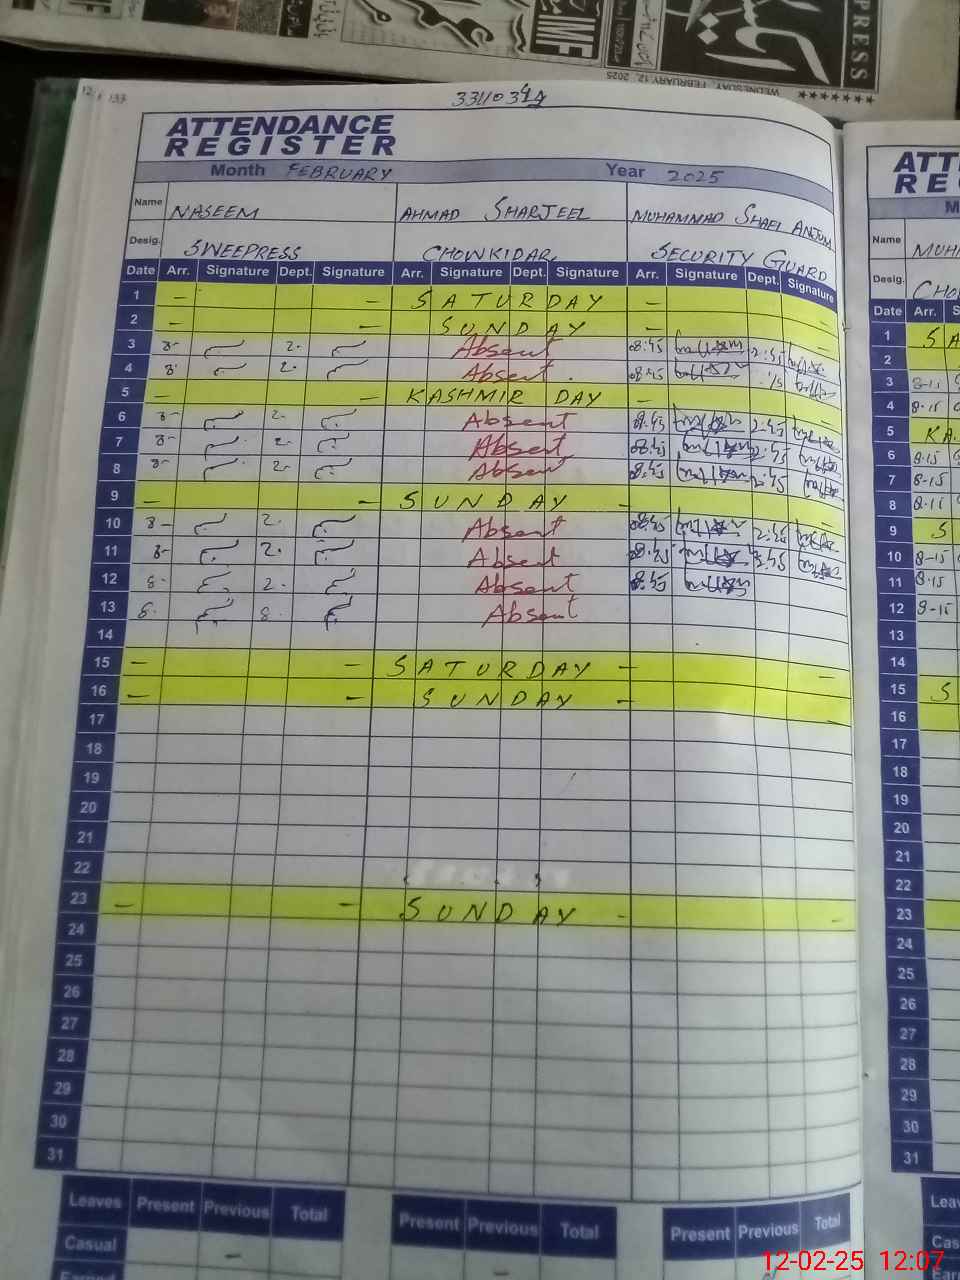 EXPRESS
WEDNESDAY, FEBRUARY 12, 2025
IMF
33110349
ATTENDANCE
REGISTER
Month FEBRUARY Year 2025
Name NASEEM AHMAD SHARJEEL MUHAMMAD SHAFI ANJUM
Desig. SWEEPRESS CHOWKIDAR SECURITY GUARD
Date Arr. Signature Dept. Signature Arr. Signature Dept. Signature Arr. Signature Dept. Signature
1 - - SATURDAY - -
2 - - SUNDAY - -
3 8- 2. Absent 08:45 2:45
4 8- 2. Absent 08:45
5 - - KASHMIR DAY - -
6 8- 2- Absent 08:45 2:45
7 8- 2- Absent 08:45 2:45
8 8- 2- Absent 08:45 2:45
9 - - SUNDAY - -
10 8- 2. Absent 08:45 2:45
11 8- 2. Absent 08:45 2:45
12 8- 2. Absent 08:45
13 8- 8- Absent
14
15 - - SATURDAY - -
16 - - SUNDAY - -
17
18
19
20
21
22
23 - - SUNDAY - -
24
25
26
27
28
29
30
31
Leaves Present Previous Total Present Previous Total Present Previous Total
Casual -
Earned
ATT
RE
M
Name MUH
Desig. CHO
Date Arr. S
1 SA
2
3 8-15
4 8-15
5 KA
6 8-15
7 8-15
8 8-15
9 S
10 8-15
11 8-15
12 8-15
13
14
15 S
16
17
18
19
20
21
22
23
24
25
26
27
28
29
30
31
Leav
Cas
Ear
12-02-25 12:07